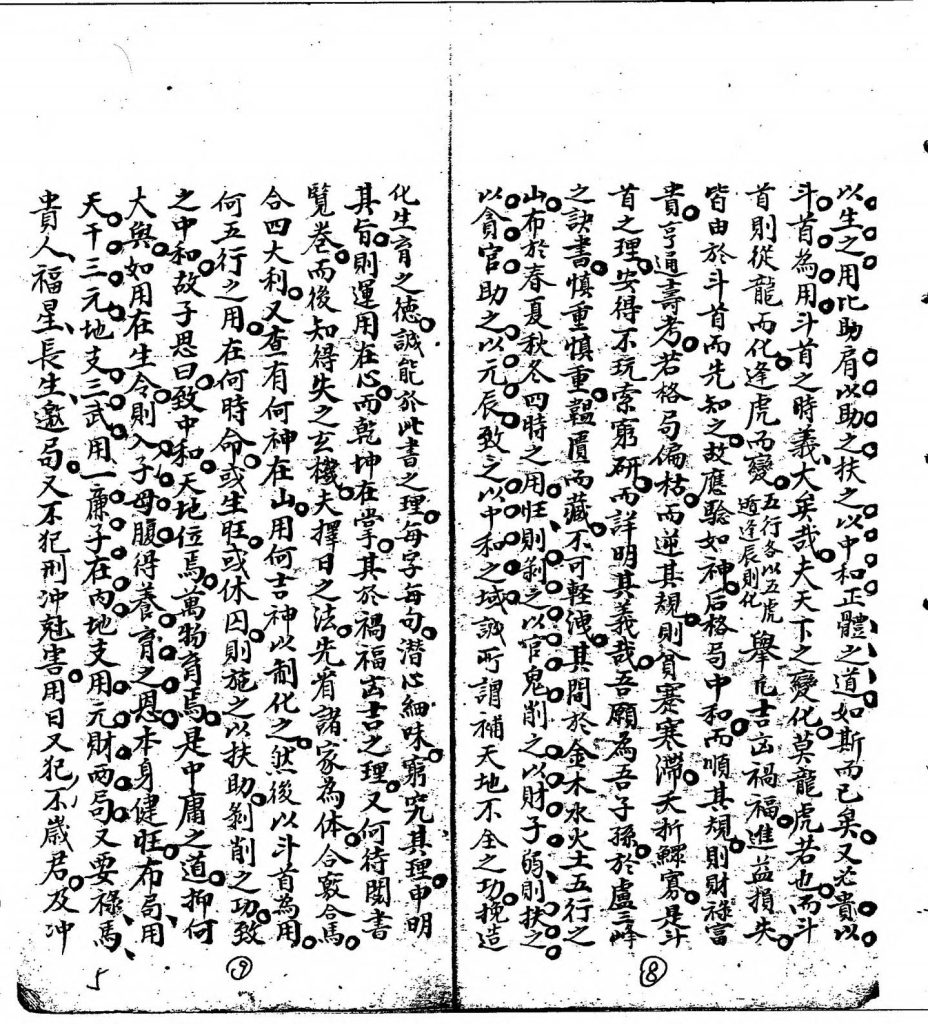 以生之用比助肩以助之扶之以中和正體之道如斯而已矣又芯貴以
斗首為用斗首之時義大矣哉夫天下之變化莫龍虎若也而斗
首則從龍而化逢虎而變五行各以五虎遁逢辰則化舉凡吉凶禍福進益損失
皆由於斗首而先知之故應驗如神后格局中和而順其規則財祿富
貴亨通壽考若格局偏枯而逆其規則貧蹇寒滯夭折鰥寡是斗
首之理安得不玩索窮研而詳明其義哉吾願為吾子孫於盧三峰
之訣書慎重慎重韞匵而藏不可輕洩其間於金木水火土五行之
山布於春夏秋冬四時之用旺則剝之以官鬼削之以財子弱則扶之
以貪官助之以元辰致之以中和之域誠所謂補天地不全之功挽造
化生育之德誠能於此書之理每字每句潜心細味窮究其理申明
其旨則運用在心而乾坤在掌其於禍福凶吉之理又何待閱書
覽卷而後知得失之玄機夫擇日之法先省諸家為体合竅合馬
合四大利又查有何神在山用何吉神以制化之然後以斗首為用
何五行之用在何時命或生旺或休囚則施之以扶助剝削之功致
之中和故子思曰致中和天地位焉萬物育焉是中庸之道抑何
大與如用在生令則入子母腹得養育之恩本身健旺布局用
天干三元地支三武用一廉子在內地支用元財两局又要祿馬
貴人福星長生邀局又不犯刑冲尅害用日又犯不歲君及冲
⑧
⑨
5